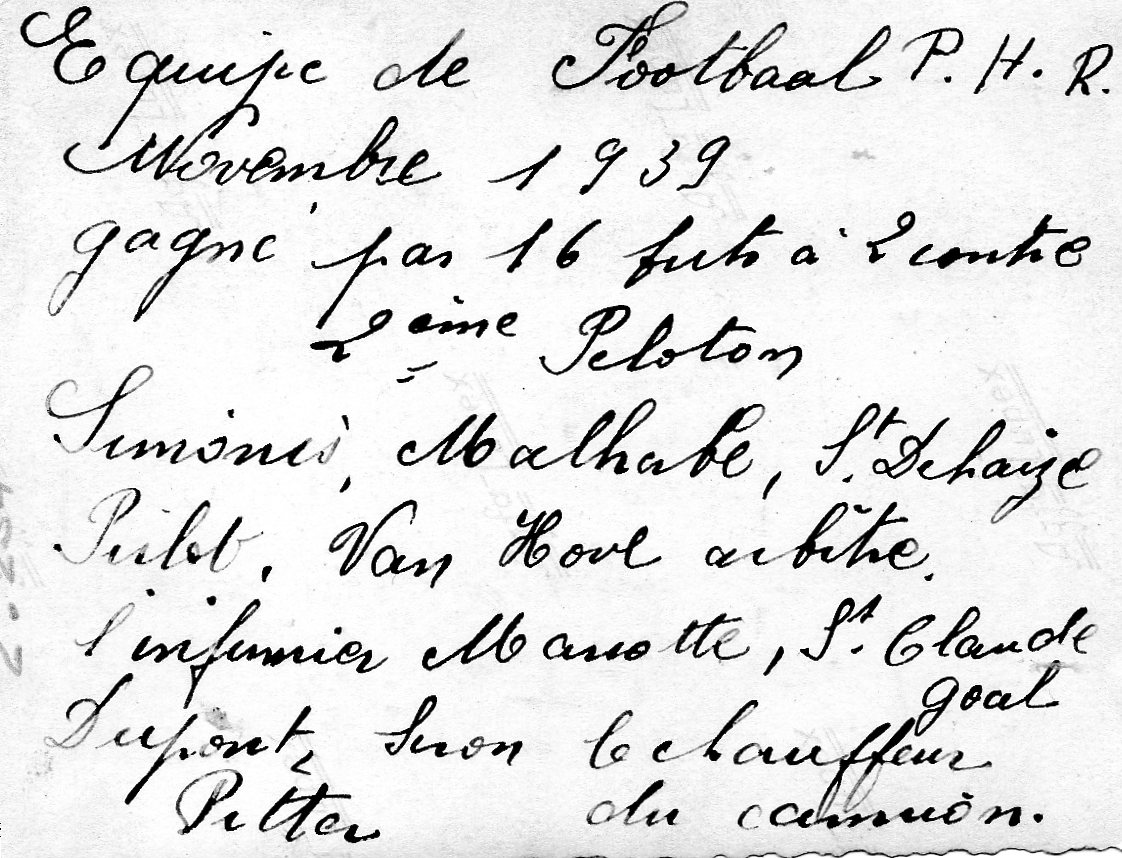 Equipe de Footbaal P. H. R.
Novembre 1939
gagné par 16 futs à 2 contre
2ème Peloton
Simonis, Malhabe, St. Dehaize
Van Hove arbitre.
l'infirmier Marotte, St. Claude
goal
Dupont, Suron le chauffeur
Pitter du camion.